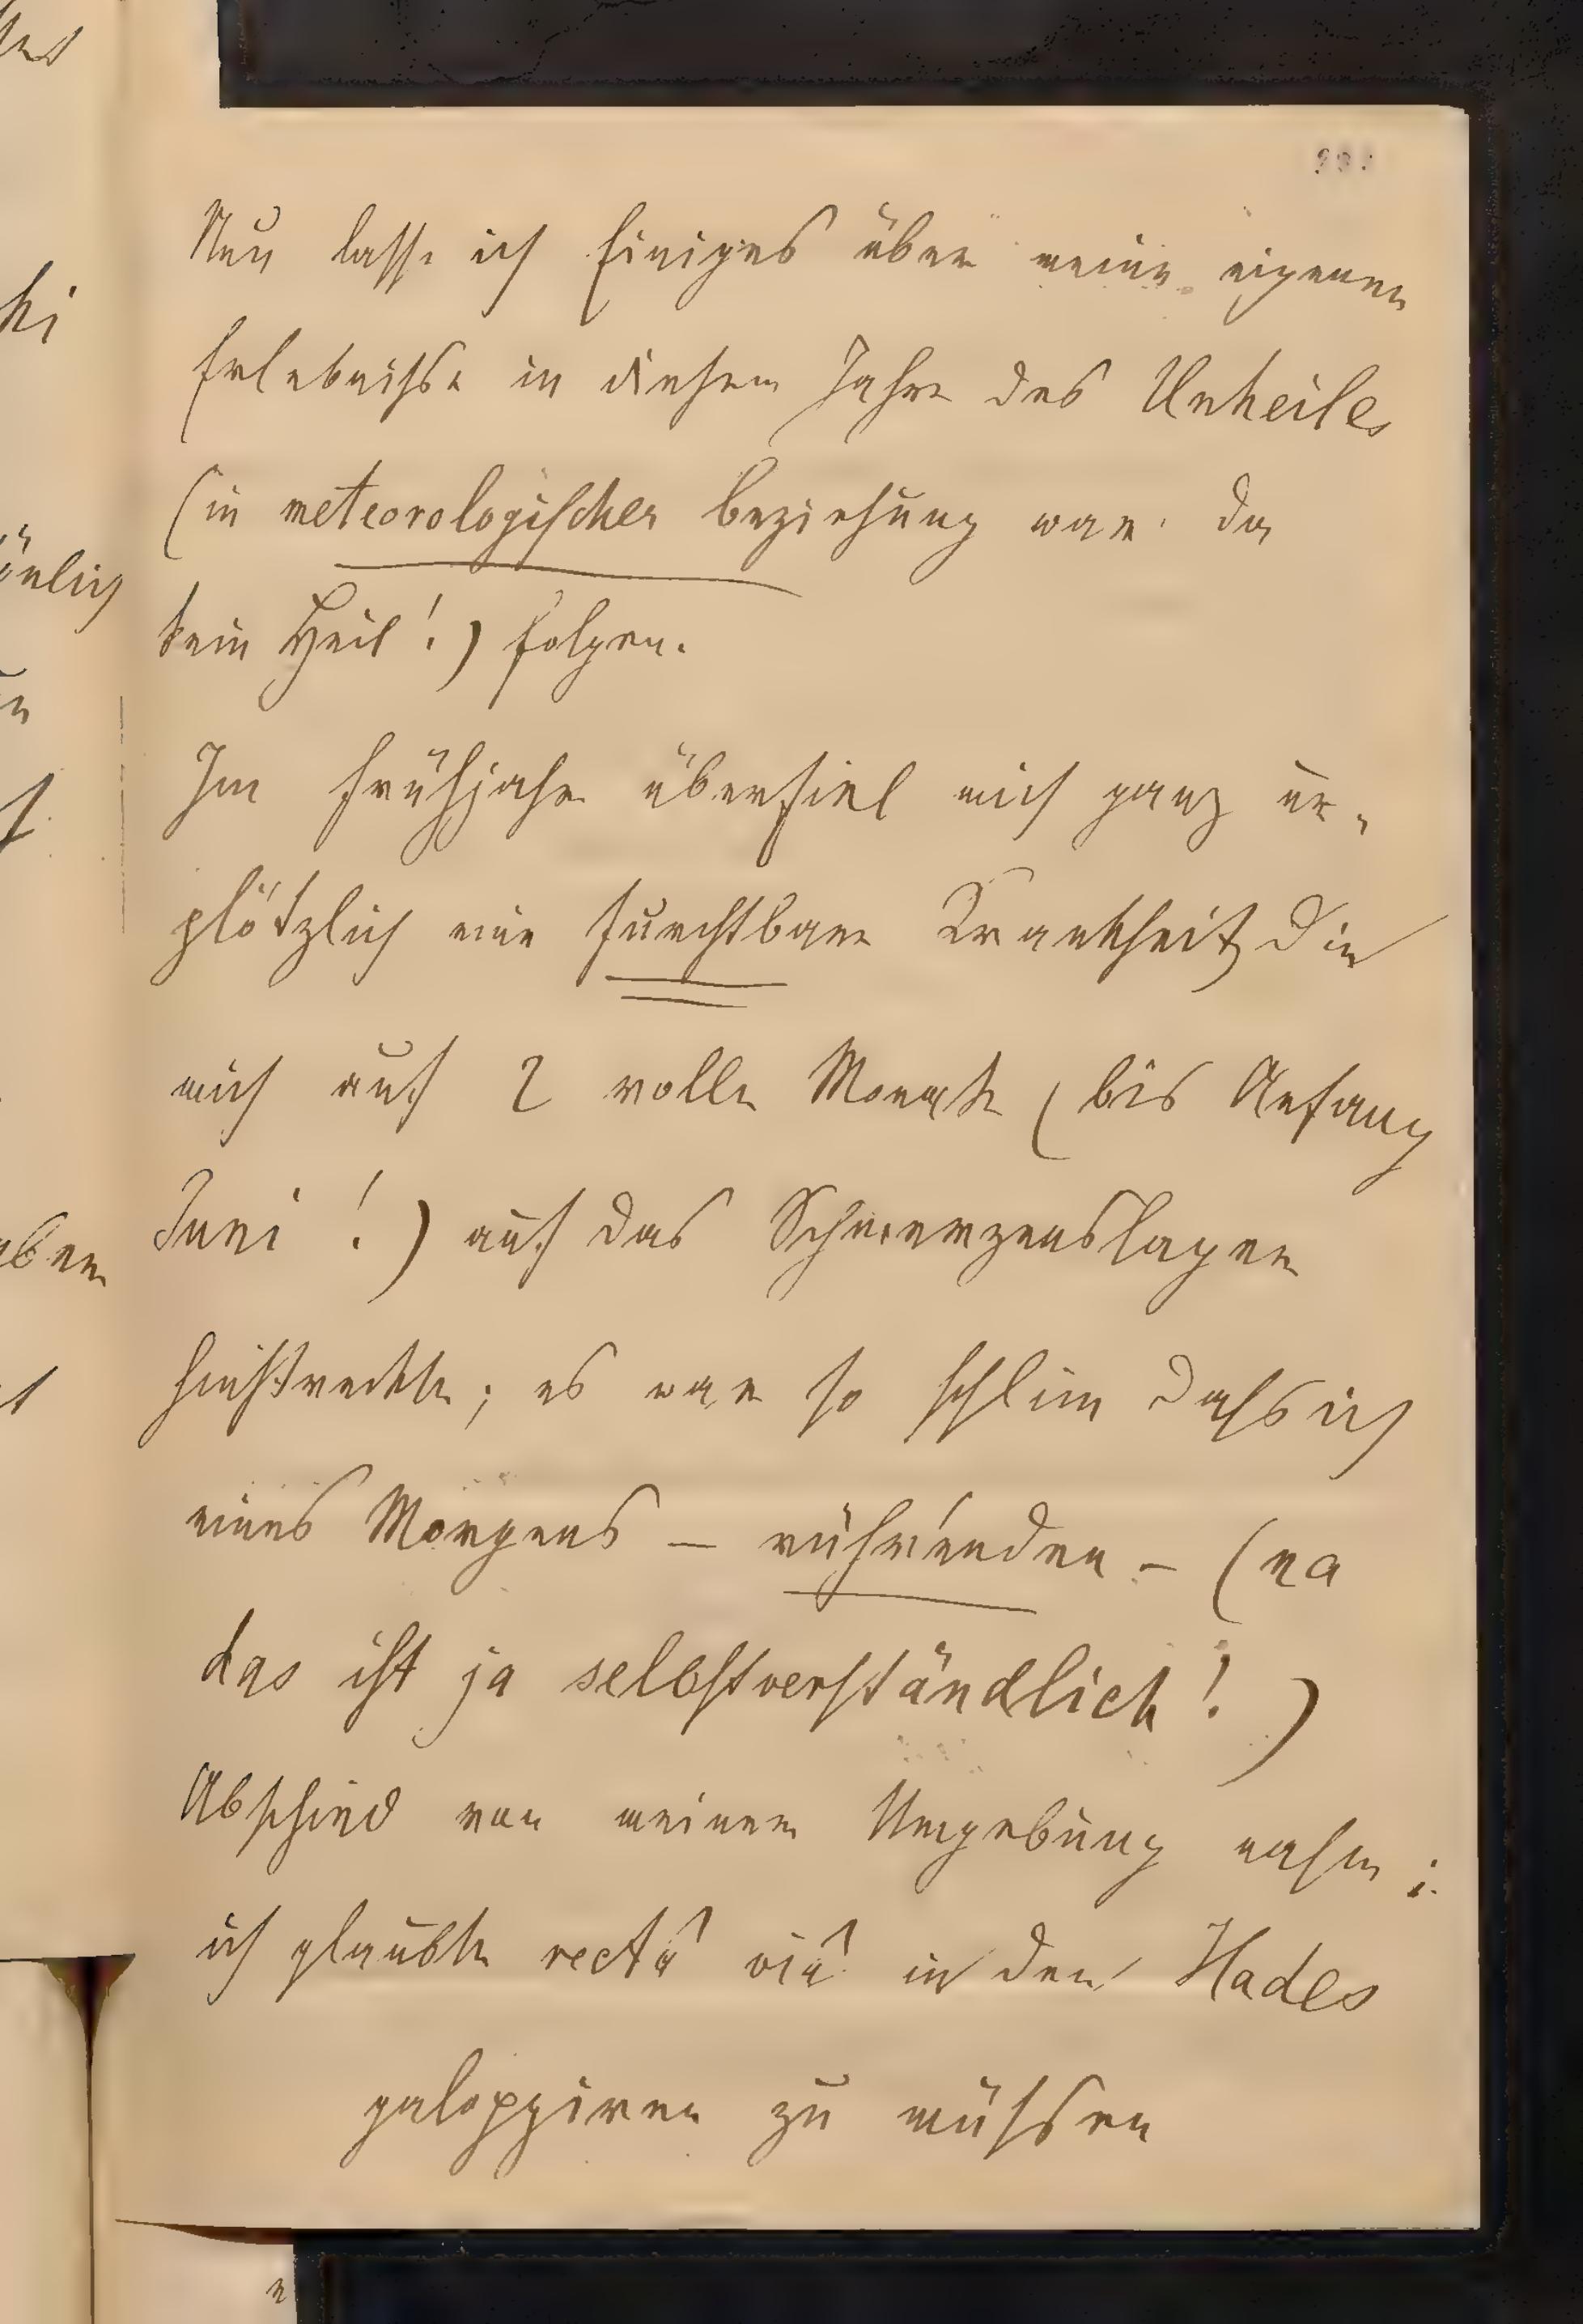 Nun lasse ich Einiges über meine eigenen
Erlebnisse in diesem Jahre des Unheiles
(in meteorologischer Beziehung war da
kein Heil!) folgen.
Im Frühjahr überfiel mich ganz ur-
plötzlich eine furchtbare Krankheit, die
mich auf 2 volle Monate (bis Anfang
Juni!) auf das Schmerzenslager
hinstreckte; es war so schlim̄ dass ich
eines Morgens – rührenden – (na
das ist ja selbstverständlich!)
Abschied von meiner Umgebung nahm;
ich glaubte rectâ viâ in den Hades
galoppiren zu müssen